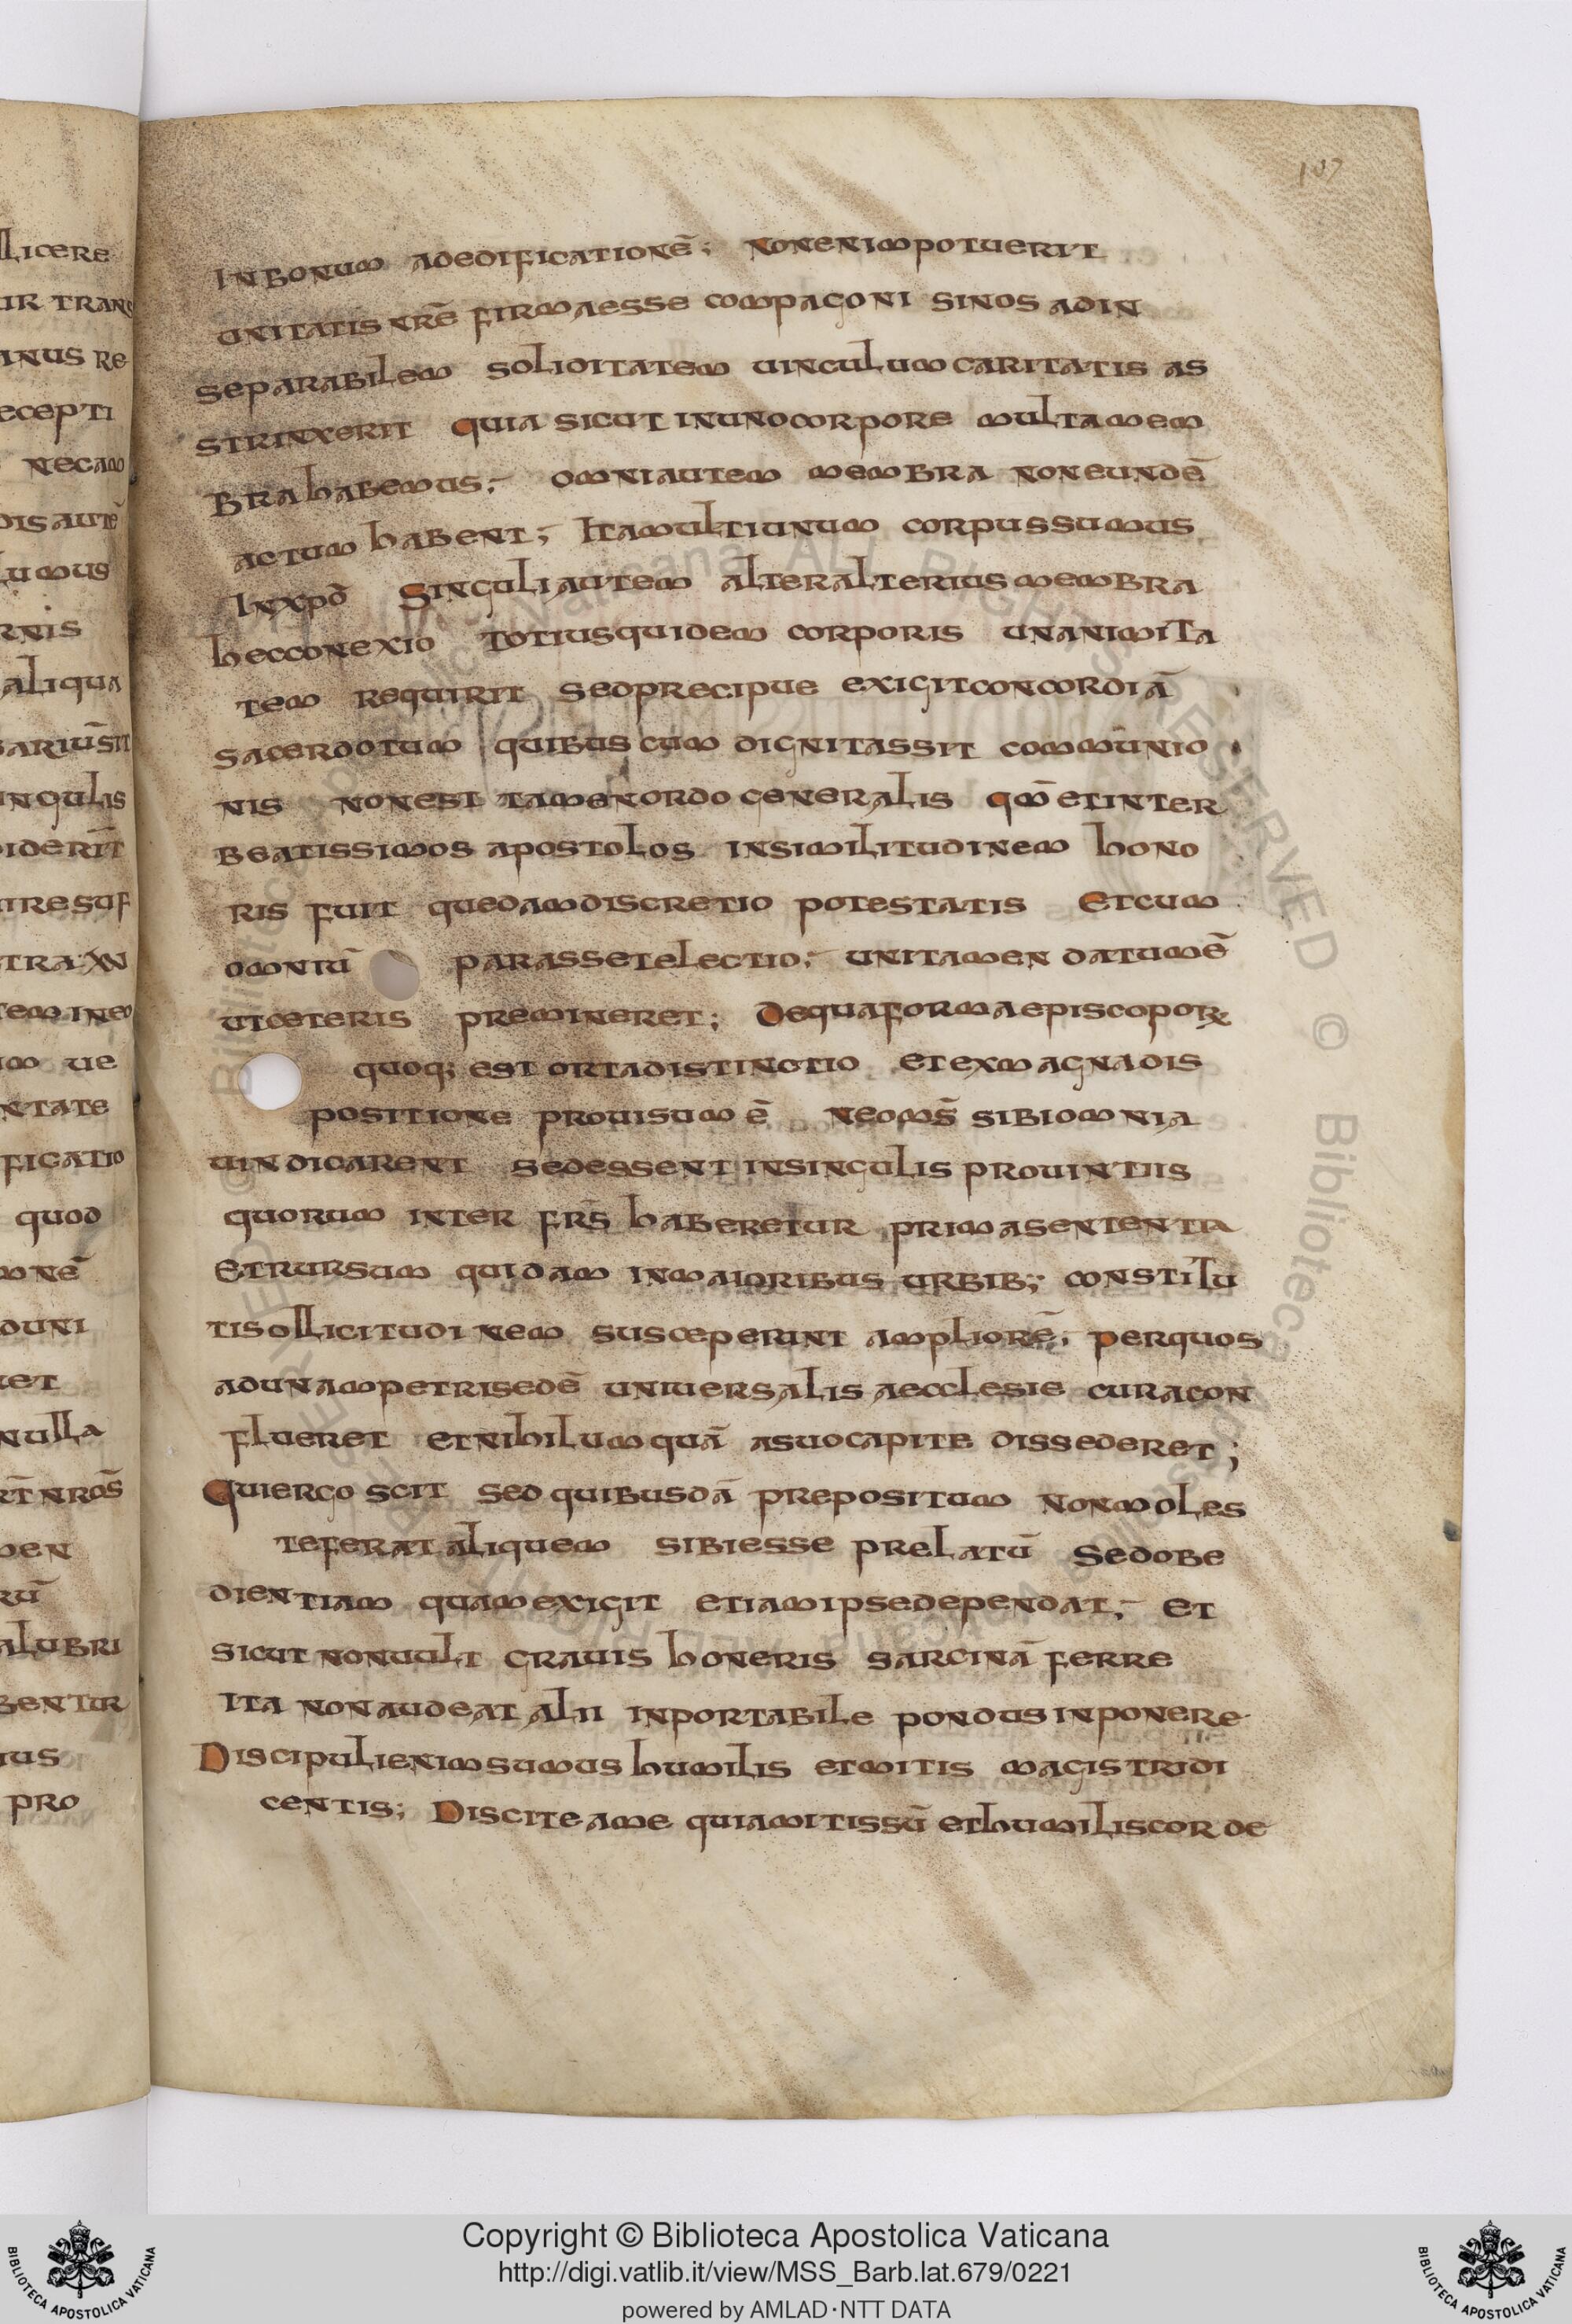 107
llicere
ur trans
inus re
ecepti
necam
dis autē
lumus
rnis
aliqua
sariūsit
inqulis
iderīt
iresuf
tra:xv
tem ineo
m ue
ntate
ficatio
quod
mnē
duni
et
nulla
rt̄ nrōs
men
rū
alubri
bentur
ius
pro
inbonum adedificationē; nonenimpotuerit
unitatis nrē firmaesse compagoni sinos adin
separabilem soliditatem uinculum caritatis as
strinxerit quia sicut inunocorpore multamem
bra habemus; omniautem membra noneundē
actum habent; Itamultiunum corpussumus
Inxpō Singuliautem alteralterius membra
hecconexio totiusquidem corporis unanimita
tem requirit sedprecipue exigitconcordiā
sacerdotum quibus cum dignitassit commūnio
nis nonest tamenordo generalis qm̄ etinter
beatissimos apostolos insimilitudinem hono
ris fuit quedamdiscretio potestatis Etcum
omniū parassetelectio; unitamen datumē
utceteris premineret; Dequaformaepiscopoꝝ
quoq; est ortadistinctio etexmagnadis
positione prouisum ē neoms̄ sibiomnia
uindicarent sedessent insingulis prouintiis
quorum inter frs̄ haberetur primasententia
Etrursum quidam inmaioribus urbib;; constitu
tisollicitudinem susceperunt ampliorē; perquos
adunampetrisedē uniuersalis aecclesie curacon
flueret etnihilumquā asuocapite dissederet;
Quiergo scit sed quibusdā prepositum Nonmoles
teferat aliquem sibiesse prelatū Sedobe
dientiam quamexigit etiamipsedependat; Et
sicut nonuult grauis honeris sarcinā ferre
Ita nonaudeat alii inportabile pondus inponere
Discipulienimsumus humilis etmitis magistridi
centis; Disciteame quiamitissū ethumiliscorde
Copyright © Biblioteca Apostolica Vaticana
http://digi.vatlib.it/view/MSS_Barb.lat.679/0221
powered by AMLAD·NTT DATA
BIBLIOTECA APOSTOLICA VATICANA
BIBLIOTECA APOSTOLICA VATICANA